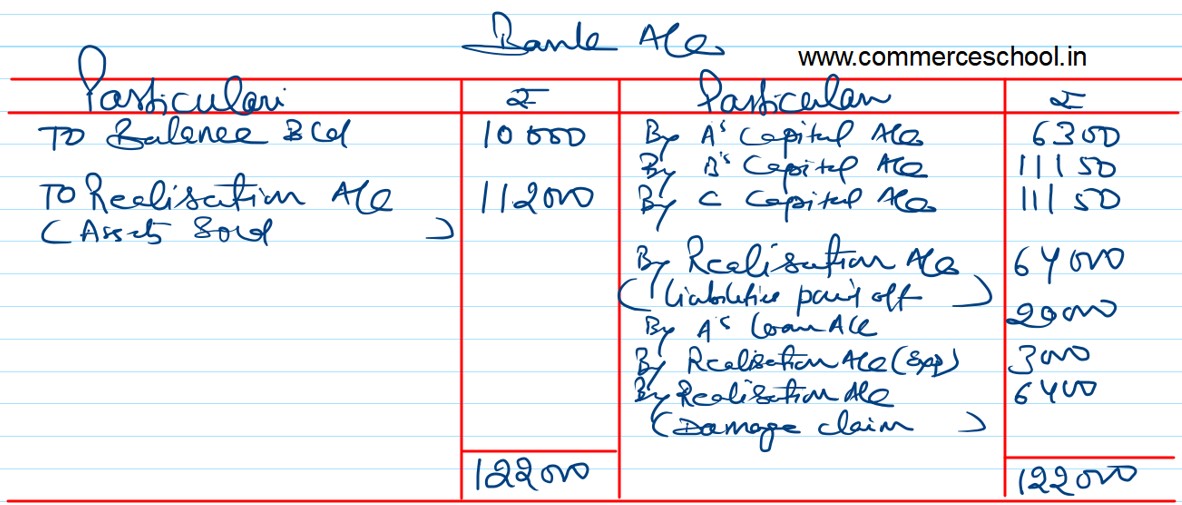 Bank A/c
www.commerceschool.in
Particulars ₹ Particulars ₹
To Balance B/d 10000 By A's Capital A/c 6300
By B's Capital A/c 11150
To Realisation A/c 112000 By C Capital A/c 11150
(Assets Sold)
By Realisation A/c 64000
(liabilities paid off)
By A's Loan A/c 20000
By Realisation A/c (Exp) 3000
By Realisation A/c 6400
(Damage claim)
122000 122000